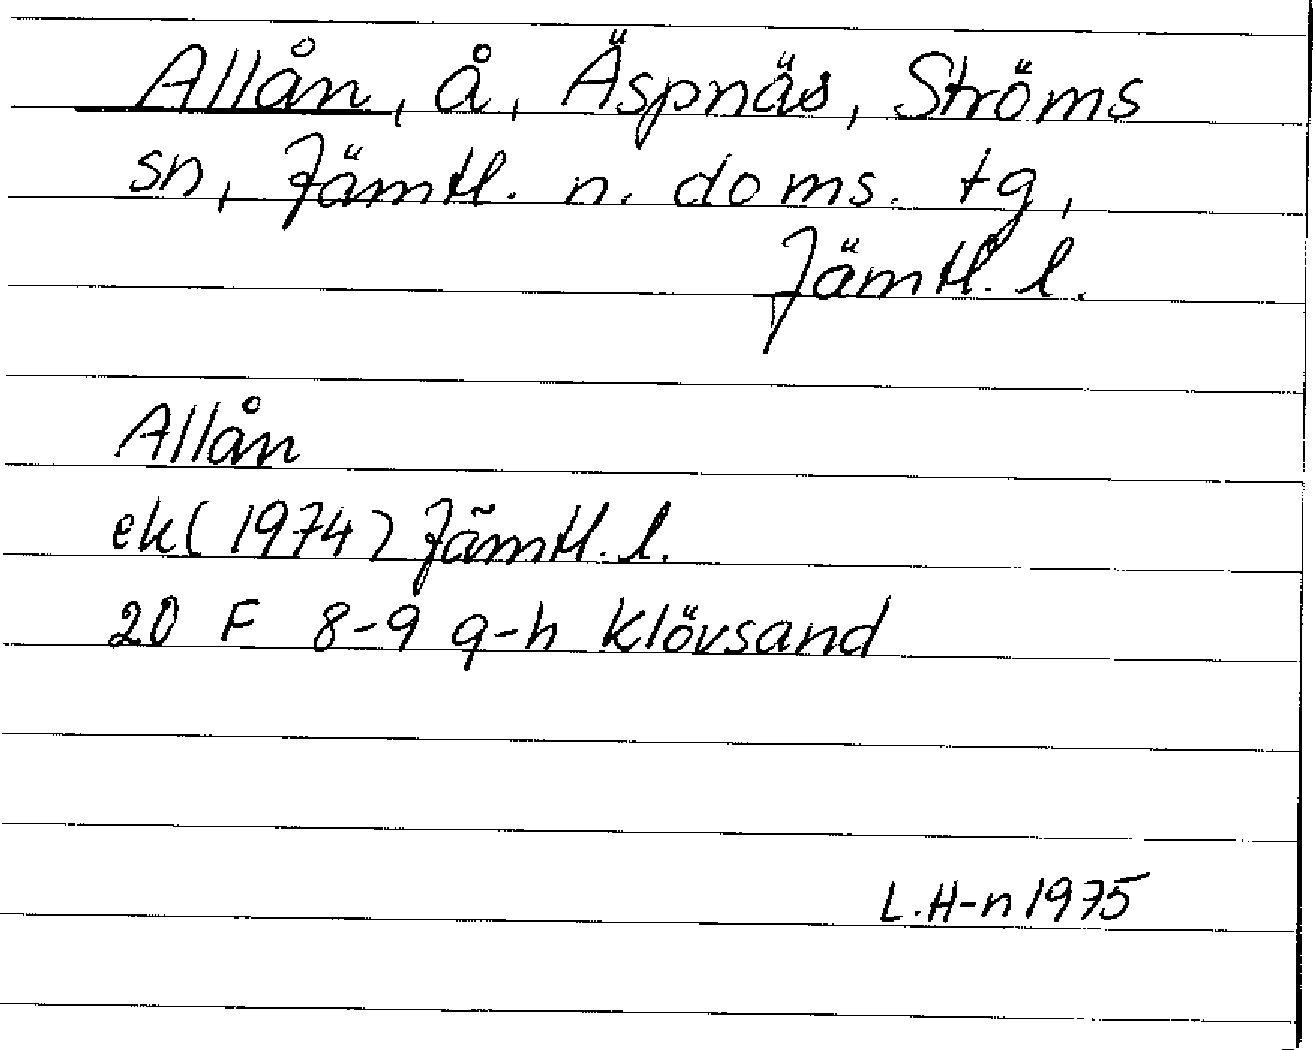 Allån, å, Äspnäs, Ströms
sn, Jämtl. n. doms. tg,
Jämtl. l.
Allån
ek (1974) Jämtl. l.
20 F 8-9 g-h Klövsand
L.H-n 1975